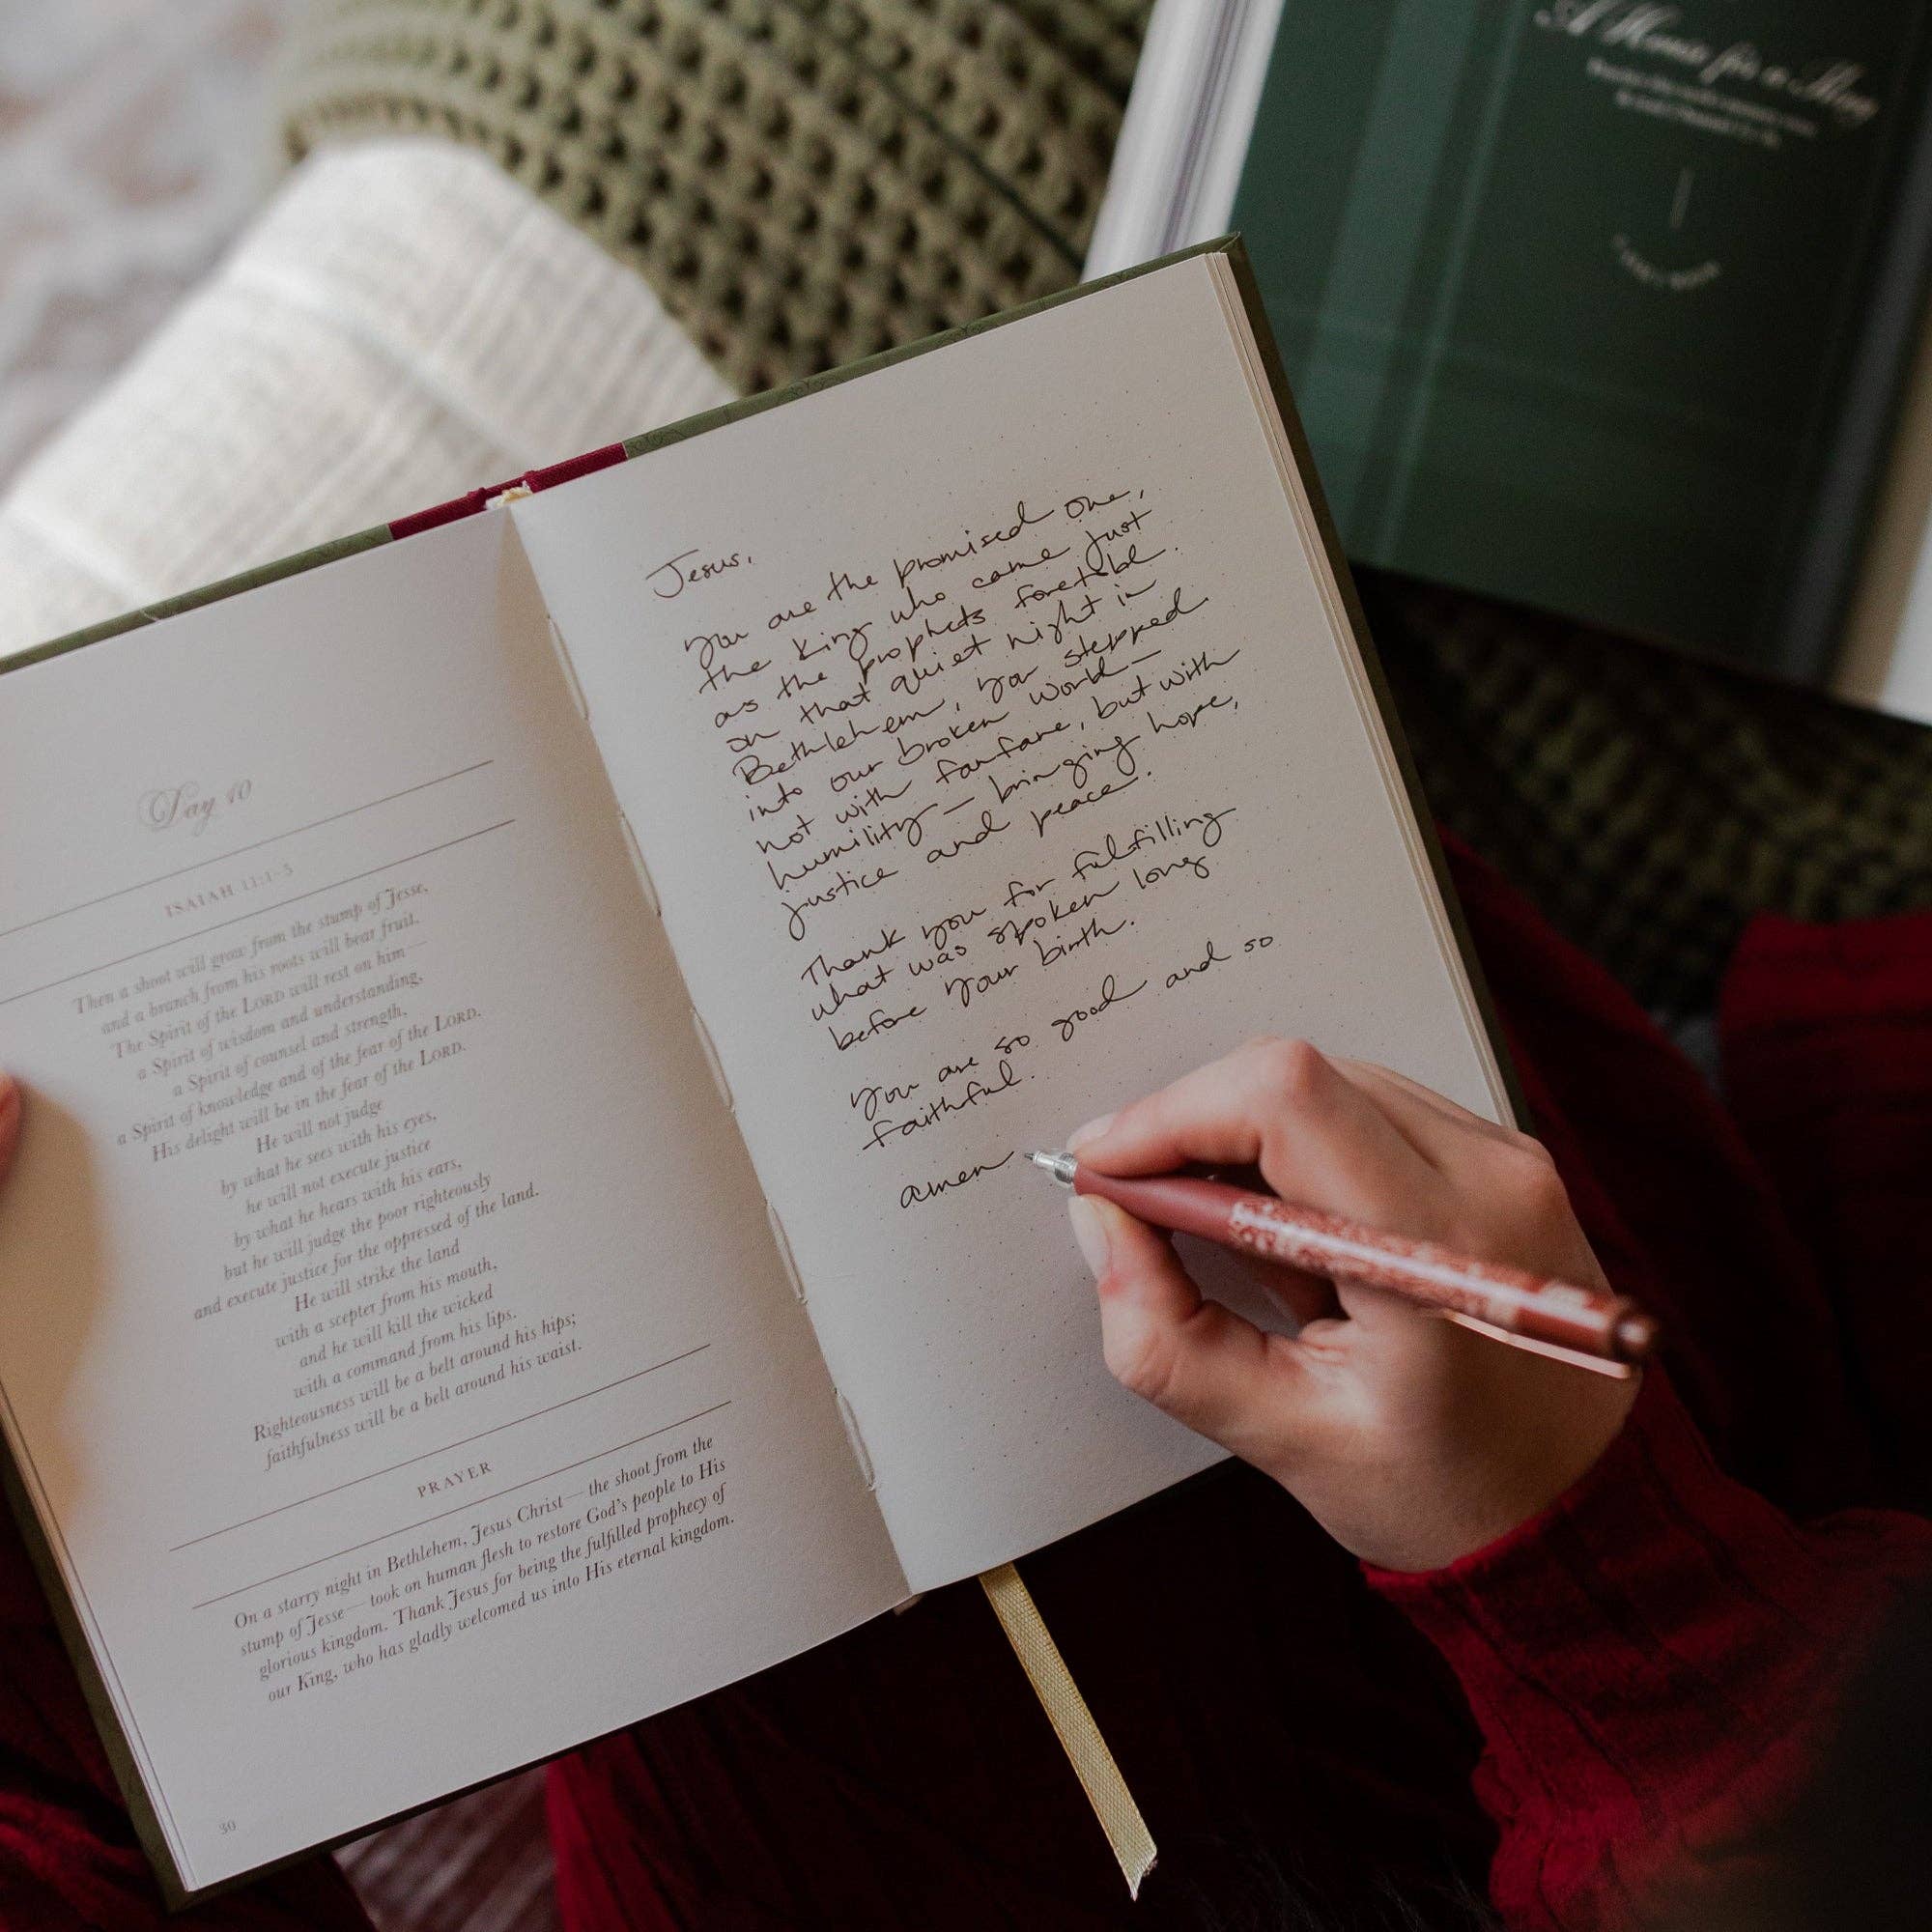 Day 10
ISAIAH 11:1-5
Then a shoot will grow from the stump of Jesse,
and a branch from his roots will bear fruit.
The Spirit of the LORD will rest on him—
a Spirit of wisdom and understanding,
a Spirit of counsel and strength,
a Spirit of knowledge and of the fear of the LORD.
His delight will be in the fear of the LORD.
He will not judge
by what he sees with his eyes,
he will not execute justice
by what he hears with his ears,
but he will judge the poor righteously
and execute justice for the oppressed of the land.
He will strike the land
with a scepter from his mouth,
and he will kill the wicked
with a command from his lips.
Righteousness will be a belt around his hips;
faithfulness will be a belt around his waist.
PRAYER
On a starry night in Bethlehem, Jesus Christ—the shoot from the
stump of Jesse—took on human flesh to restore God's people to His
glorious kingdom. Thank Jesus for being the fulfilled prophecy of
our King, who has gladly welcomed us into His eternal kingdom.
30
Jesus,
You are the promised one,
the King who came just
as the prophets foretold.
on that quiet night in
Bethlehem, you stepped
into our broken world—
not with fanfare, but with
humility— bringing hope,
justice and peace.
Thank you for fulfilling
what was spoken long
before Your birth.
You are so good and so
faithful.
amen
A House for a King